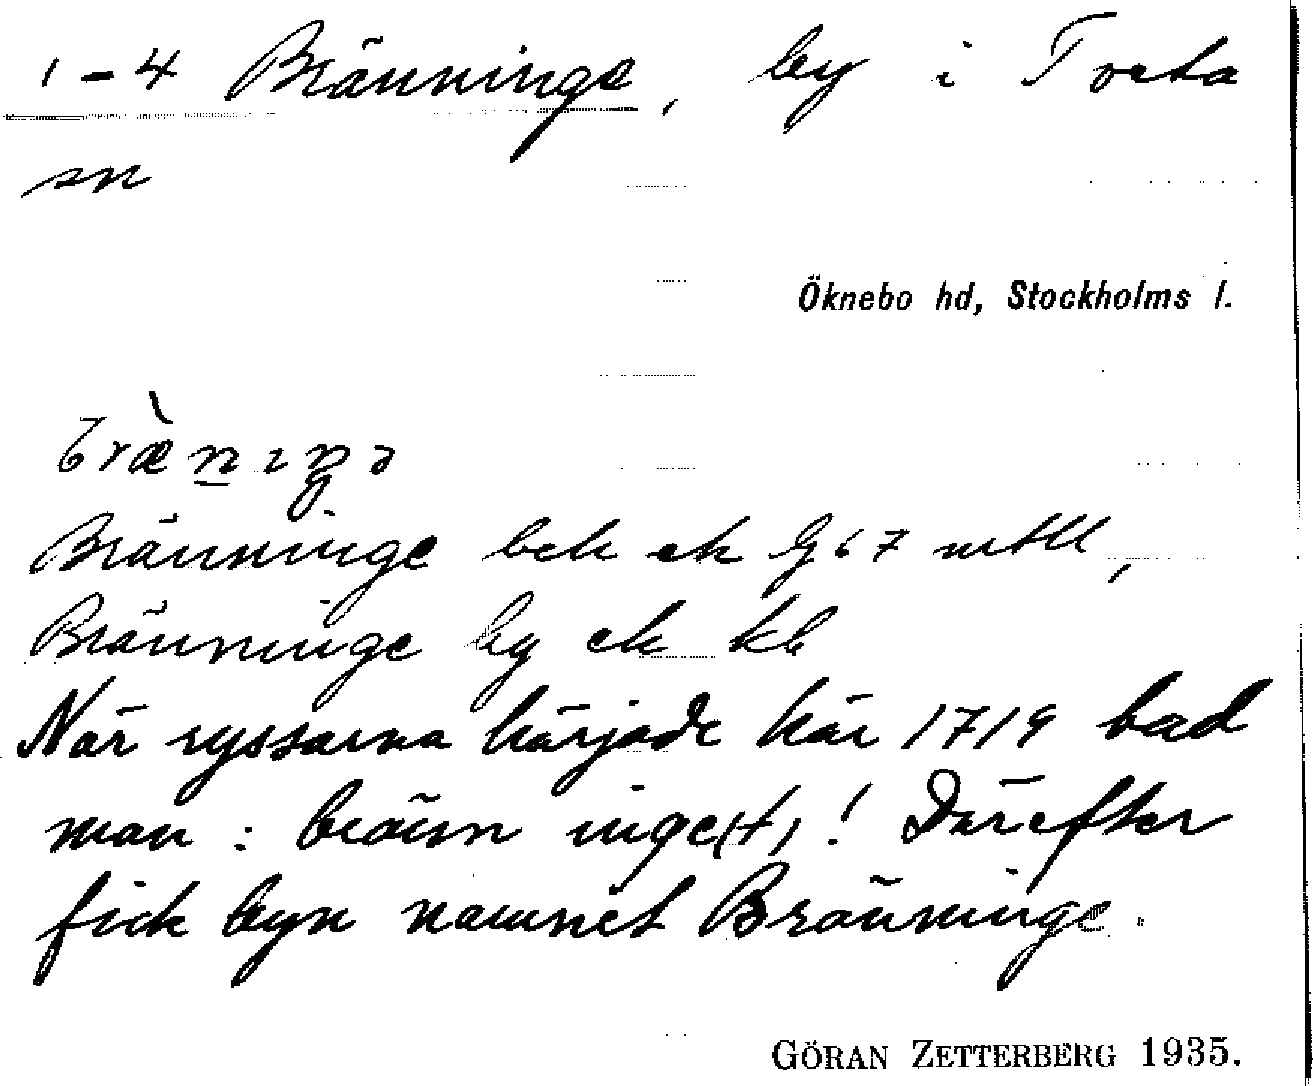 1-4 Bränninge, by i Torta
sn
Öknebo hd, Stockholms l.
Bränninge bek ek G67 mtll,
Bränninge by ek kb
När ryssarna härjade här 1719 bad
man: bränn inge(t)! Därefter
fick byn namnet Bränninge.
GÖRAN ZETTERBERG 1935.